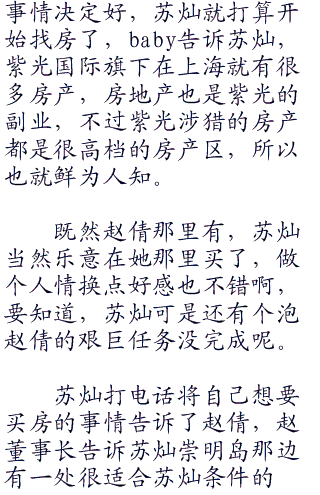 事情决定好，苏灿就打算开
始找房了，baby告诉苏灿，
紫光国际旗下在上海就有很
多房产，房地产也是紫光的
副业，不过紫光涉猎的房产
都是很高档的房产区，所以
也就鲜为人知。
既然赵倩那里有，苏灿
当然乐意在她那里买了，做
个人情换点好感也不错啊，
要知道，苏灿可是还有个泡
赵倩的艰巨任务没完成呢。
苏灿打电话将自己想要
买房的事情告诉了赵倩，赵
董事长告诉苏灿崇明岛那边
有一处很适合苏灿条件的